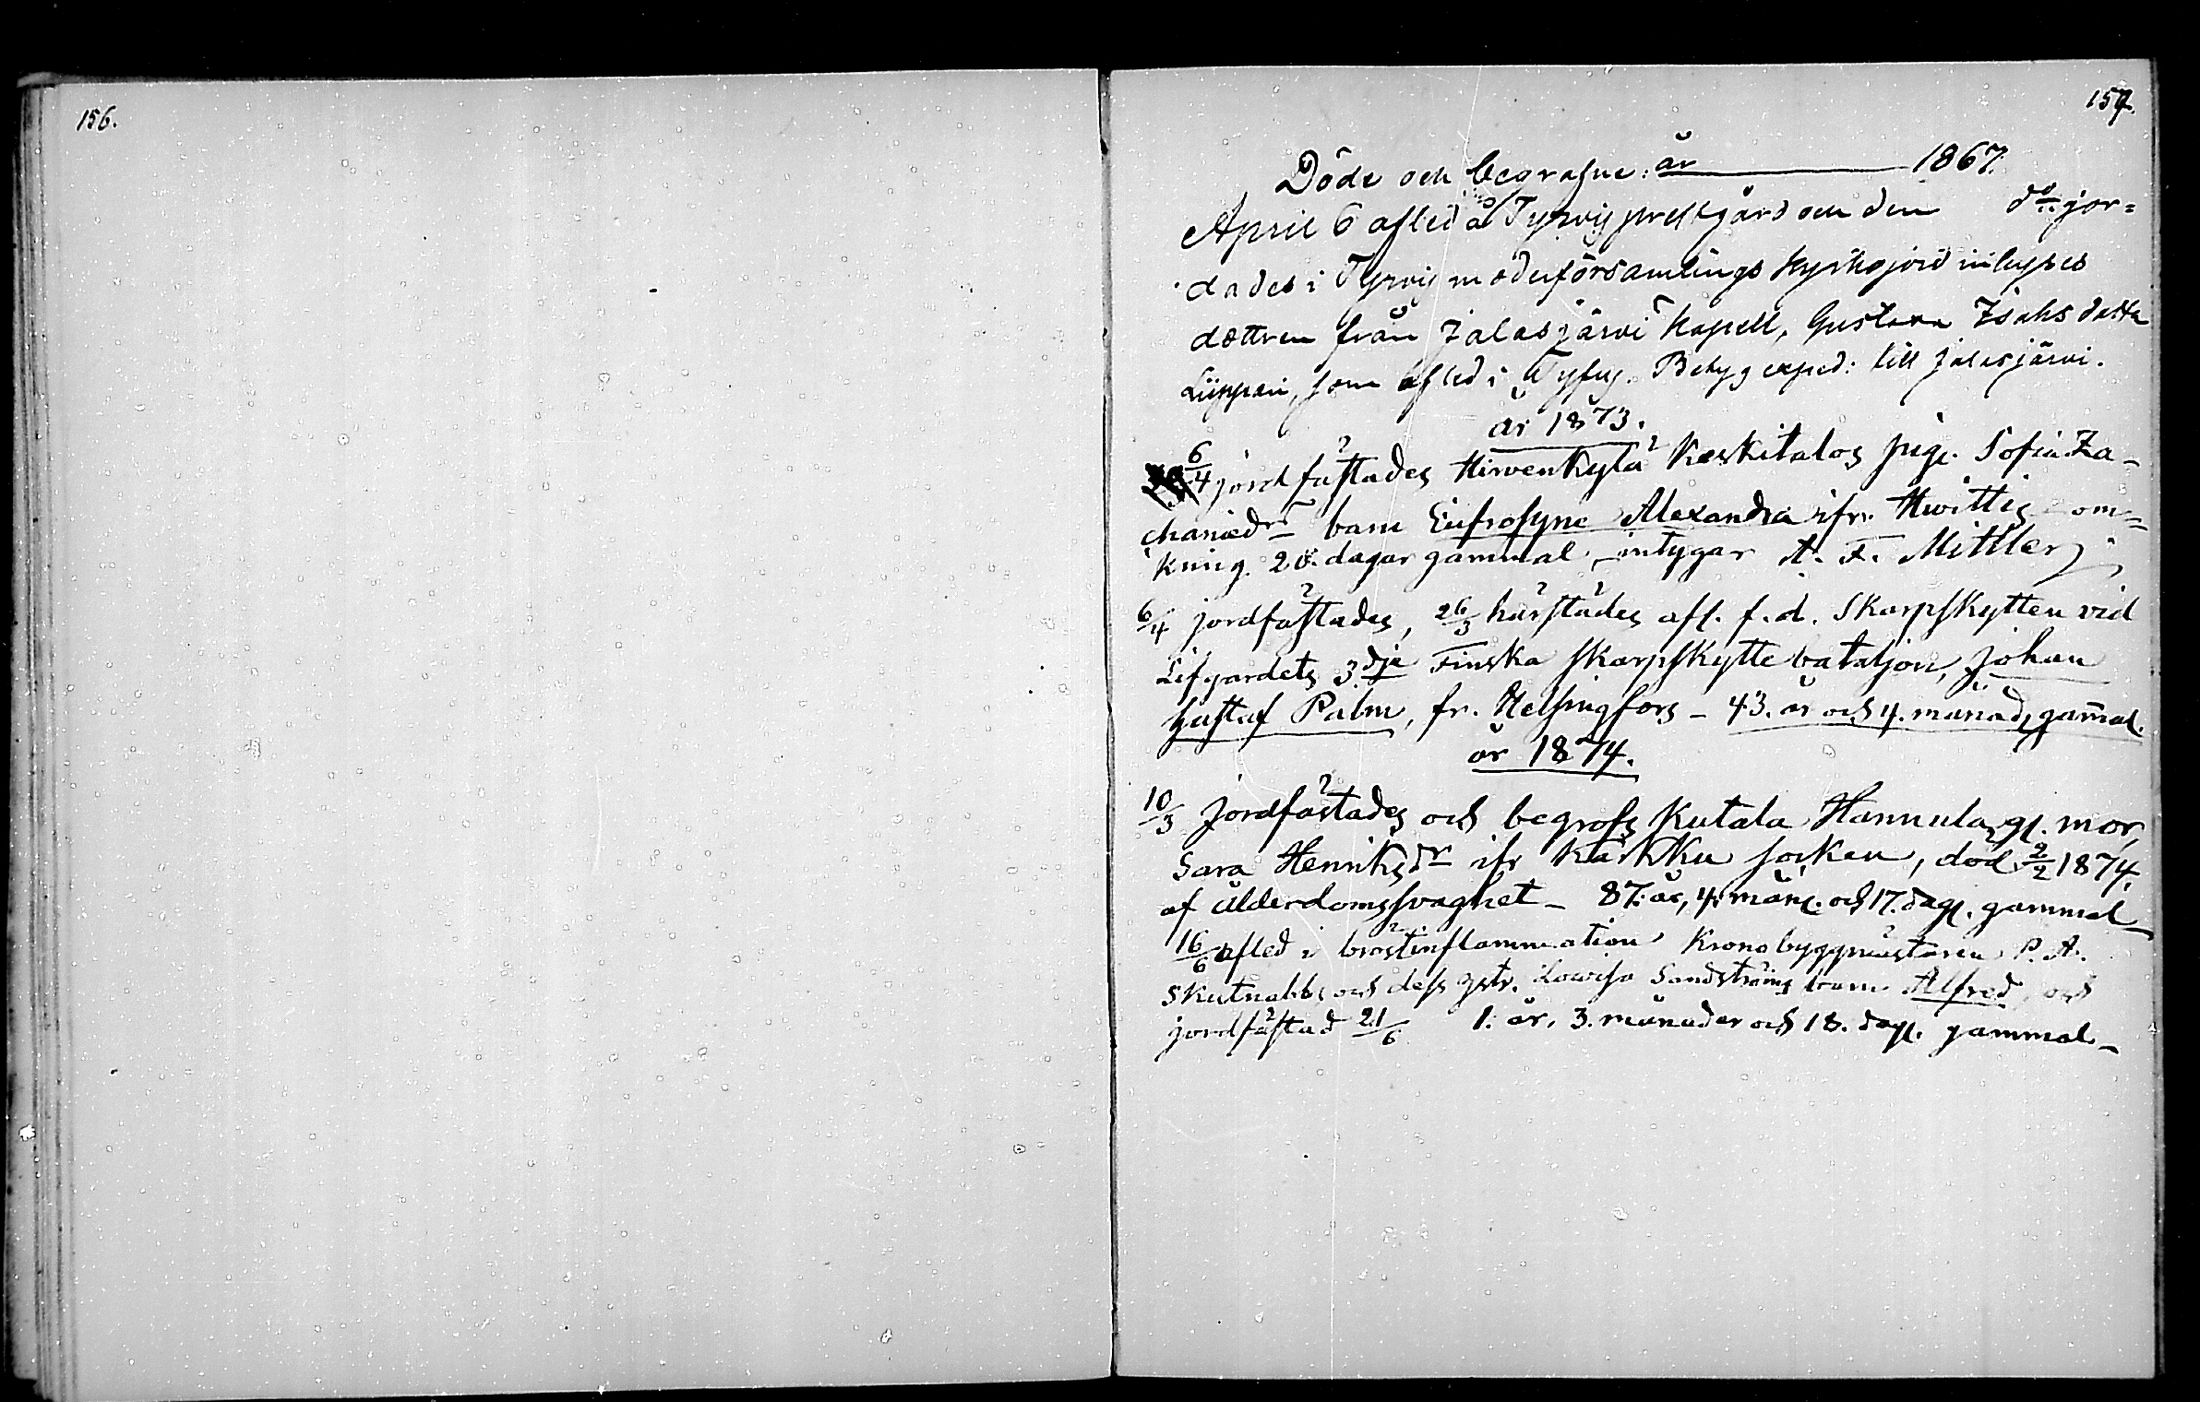 156.
157.
Döde och begrafne: år 1867.
April 6 afled å Tyrvis prestgård och den do jor=
dades i Tyrvis moderförsamlings kyrkojord inhyses
dottren från Jalasjärvi Kapell, Gustava Isaks dotter
Liippari, som afled i Tyfus. Betyg exped: till Jalasjärvi.
år 1873.
6/4 jordfästades Hirvenkylä Keskitalos pig. Sofia Za-
chariædr barn Eufrosyne Alexandra ifr. Hvittis om=
kring 20. dagar gammal, intygar A. F. Mittler
6/4 jordfästades, 26/3 härstädes afl. f. d. Skarpskytten vid
Lifgardets 3dje Finska skarpskyttebataljon, Johan
Gustaf Palm, fr. Helsingfors - 43. år och 4. månad. gammal.
år 1874.
10/3 jordfästades och begrofs Kutala Hannulas gl. mor,
Sara Henriksdr ifr Karkku socken, död 2/2 1874,
af ålderdomssvaghet - 87. år, 4. mån. och 17. dag. gammal -
16/6 afled i bröstinflammation Kronobyggmästaren P. A.
Skutnabbs och dess hstr. Lowisa Sandströms barn Alfred, och
jordfästad 21/6 1. år, 3. månader och 18. dag. gammal -